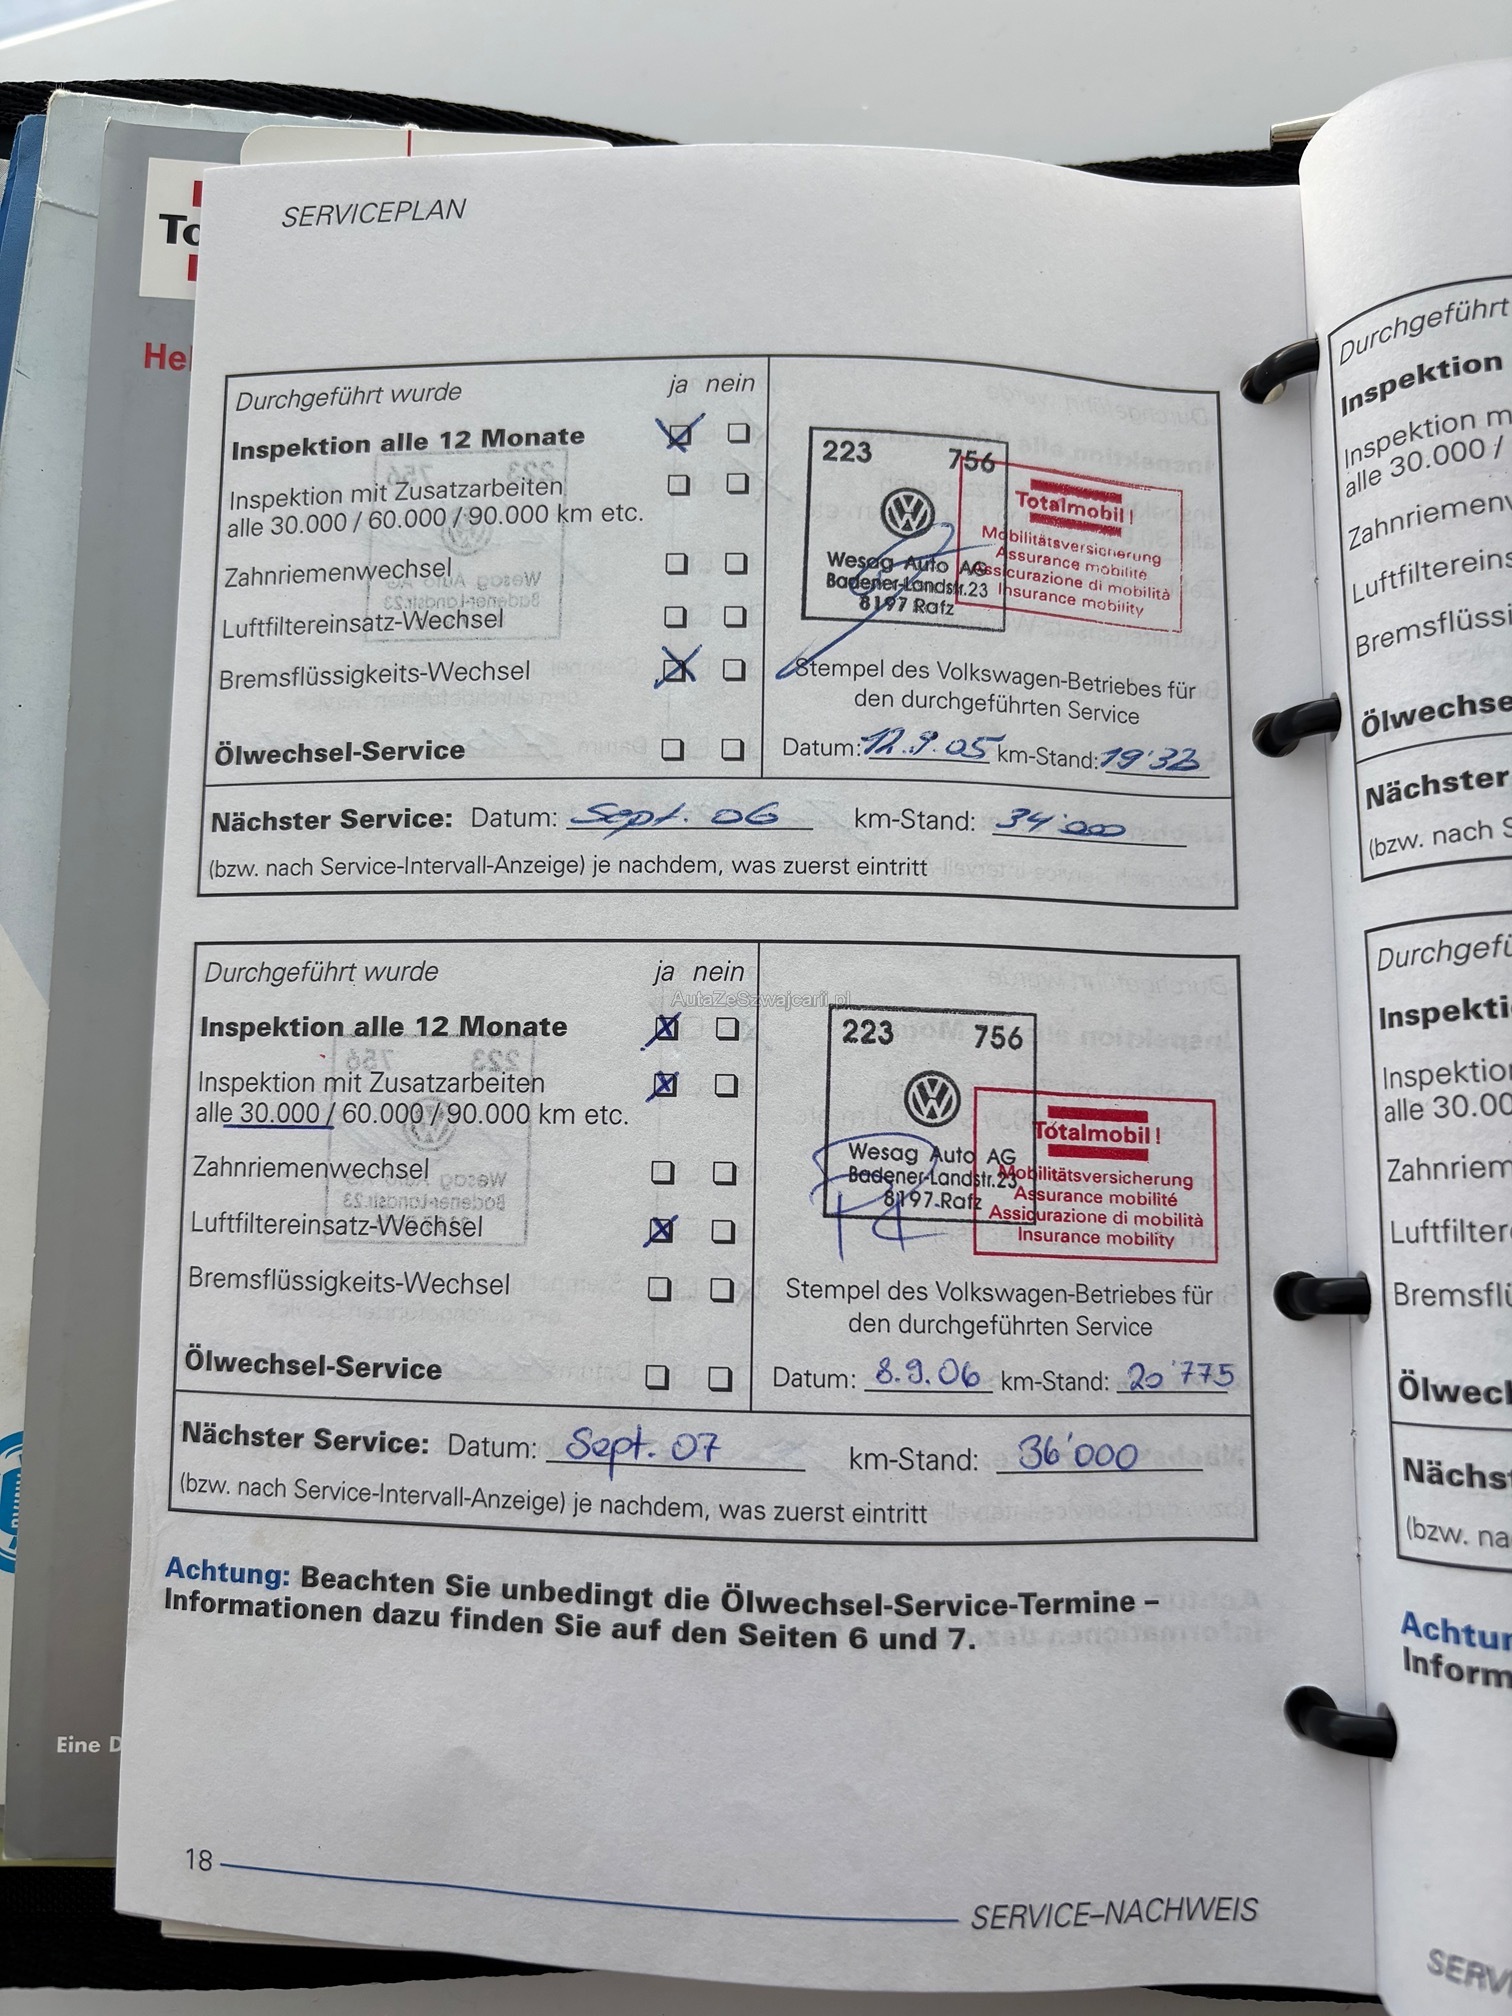 To
Hel
SERVICEPLAN
Durchgeführt wurde ja nein
Inspektion alle 12 Monate
Inspektion mit Zusatzarbeiten
alle 30.000 / 60.000 / 90.000 km etc.
Zahnriemenwechsel
Luftfiltereinsatz-Wechsel
Bremsflüssigkeits-Wechsel
Ölwechsel-Service
223 756
Wesag Auto AG
Badener-Landstr.23
8197 Rafz
Totalmobil!
Mobilitätsversicherung
Assurance mobilité
Assicurazione di mobilità
Insurance mobility
Stempel des Volkswagen-Betriebes für
den durchgeführten Service
Datum: 12.9.05 km-Stand:
Nächster Service: Datum: Sept. 06 km-Stand: 34'000
(bzw. nach Service-Intervall-Anzeige) je nachdem, was zuerst eintritt
Durchgeführt wurde ja nein
AutaZeSzwajcarii.pl
Inspektion alle 12 Monate
Inspektion mit Zusatzarbeiten
alle 30.000 / 60.000 / 90.000 km etc.
Zahnriemenwechsel
Luftfiltereinsatz-Wechsel
Bremsflüssigkeits-Wechsel
Ölwechsel-Service
223 756
Wesag Auto AG
Badener-Landstr.23
8197 Rafz
Totalmobil!
Mobilitätsversicherung
Assurance mobilité
Assicurazione di mobilità
Insurance mobility
Stempel des Volkswagen-Betriebes für
den durchgeführten Service
Datum: 8.9.06 km-Stand: 20'775
Nächster Service: Datum: Sept. 07 km-Stand: 36'000
(bzw. nach Service-Intervall-Anzeige) je nachdem, was zuerst eintritt
Achtung: Beachten Sie unbedingt die Ölwechsel-Service-Termine –
Informationen dazu finden Sie auf den Seiten 6 und 7.
Eine D
18
SERVICE–NACHWEIS
Durchgeführt
Inspektion
Inspektion m
alle 30.000 /
Zahnriemenw
Luftfiltereins
Bremsflüssi
Ölwechse
Nächster
(bzw. nach S
Durchgefü
Inspekti
Inspektio
alle 30.00
Zahnriem
Luftfilter
Bremsflü
Ölwech
Nächs
(bzw. na
Achtun
Inform
SERV